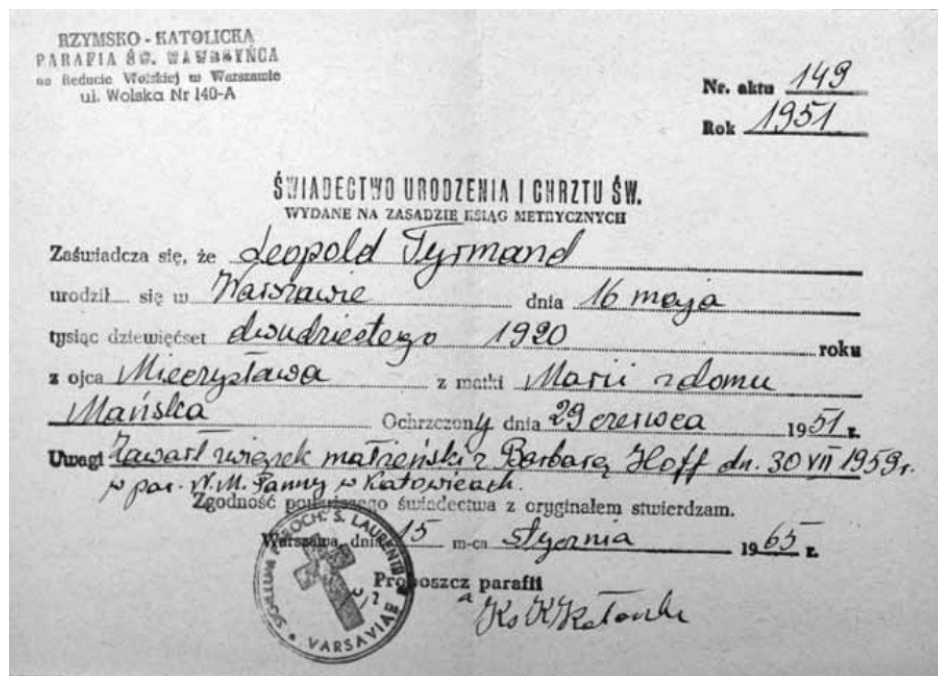 RZYMSKO-KATOLICKA
PARAFIA ŚW. WAWRZYŃCA
na Reducie Wolskiej w Warszawie
ul. Wolska Nr 140-A
Nr. aktu 149
Rok 1951
ŚWIADECTWO URODZENIA I CHRZTU ŚW.
WYDANE NA ZASADZIE KSIĄG METRYCZNYCH
Zaświadcza się, że Leopold Tyrmand
urodził się w Warszawie dnia 16 maja
tysiąc dziewięćset dwudziestego 1920 roku
z ojca Mieczysława z matki Marii z domu
Mańska Ochrzczony dnia 29 czerwca 1951 r.
Uwagi Zawarł związek małżeński z Barbarą Hoff dn. 30 VII 1959 r.
w par. N.M. Panny w Katowicach.
Zgodność powyższego świadectwa z oryginałem stwierdzam.
Warszawa, dnia 15 m-ca stycznia 1965 r.
Proboszcz parafii
SIGILLUM PAROCH. S. LAURENTII VARSAVIAE